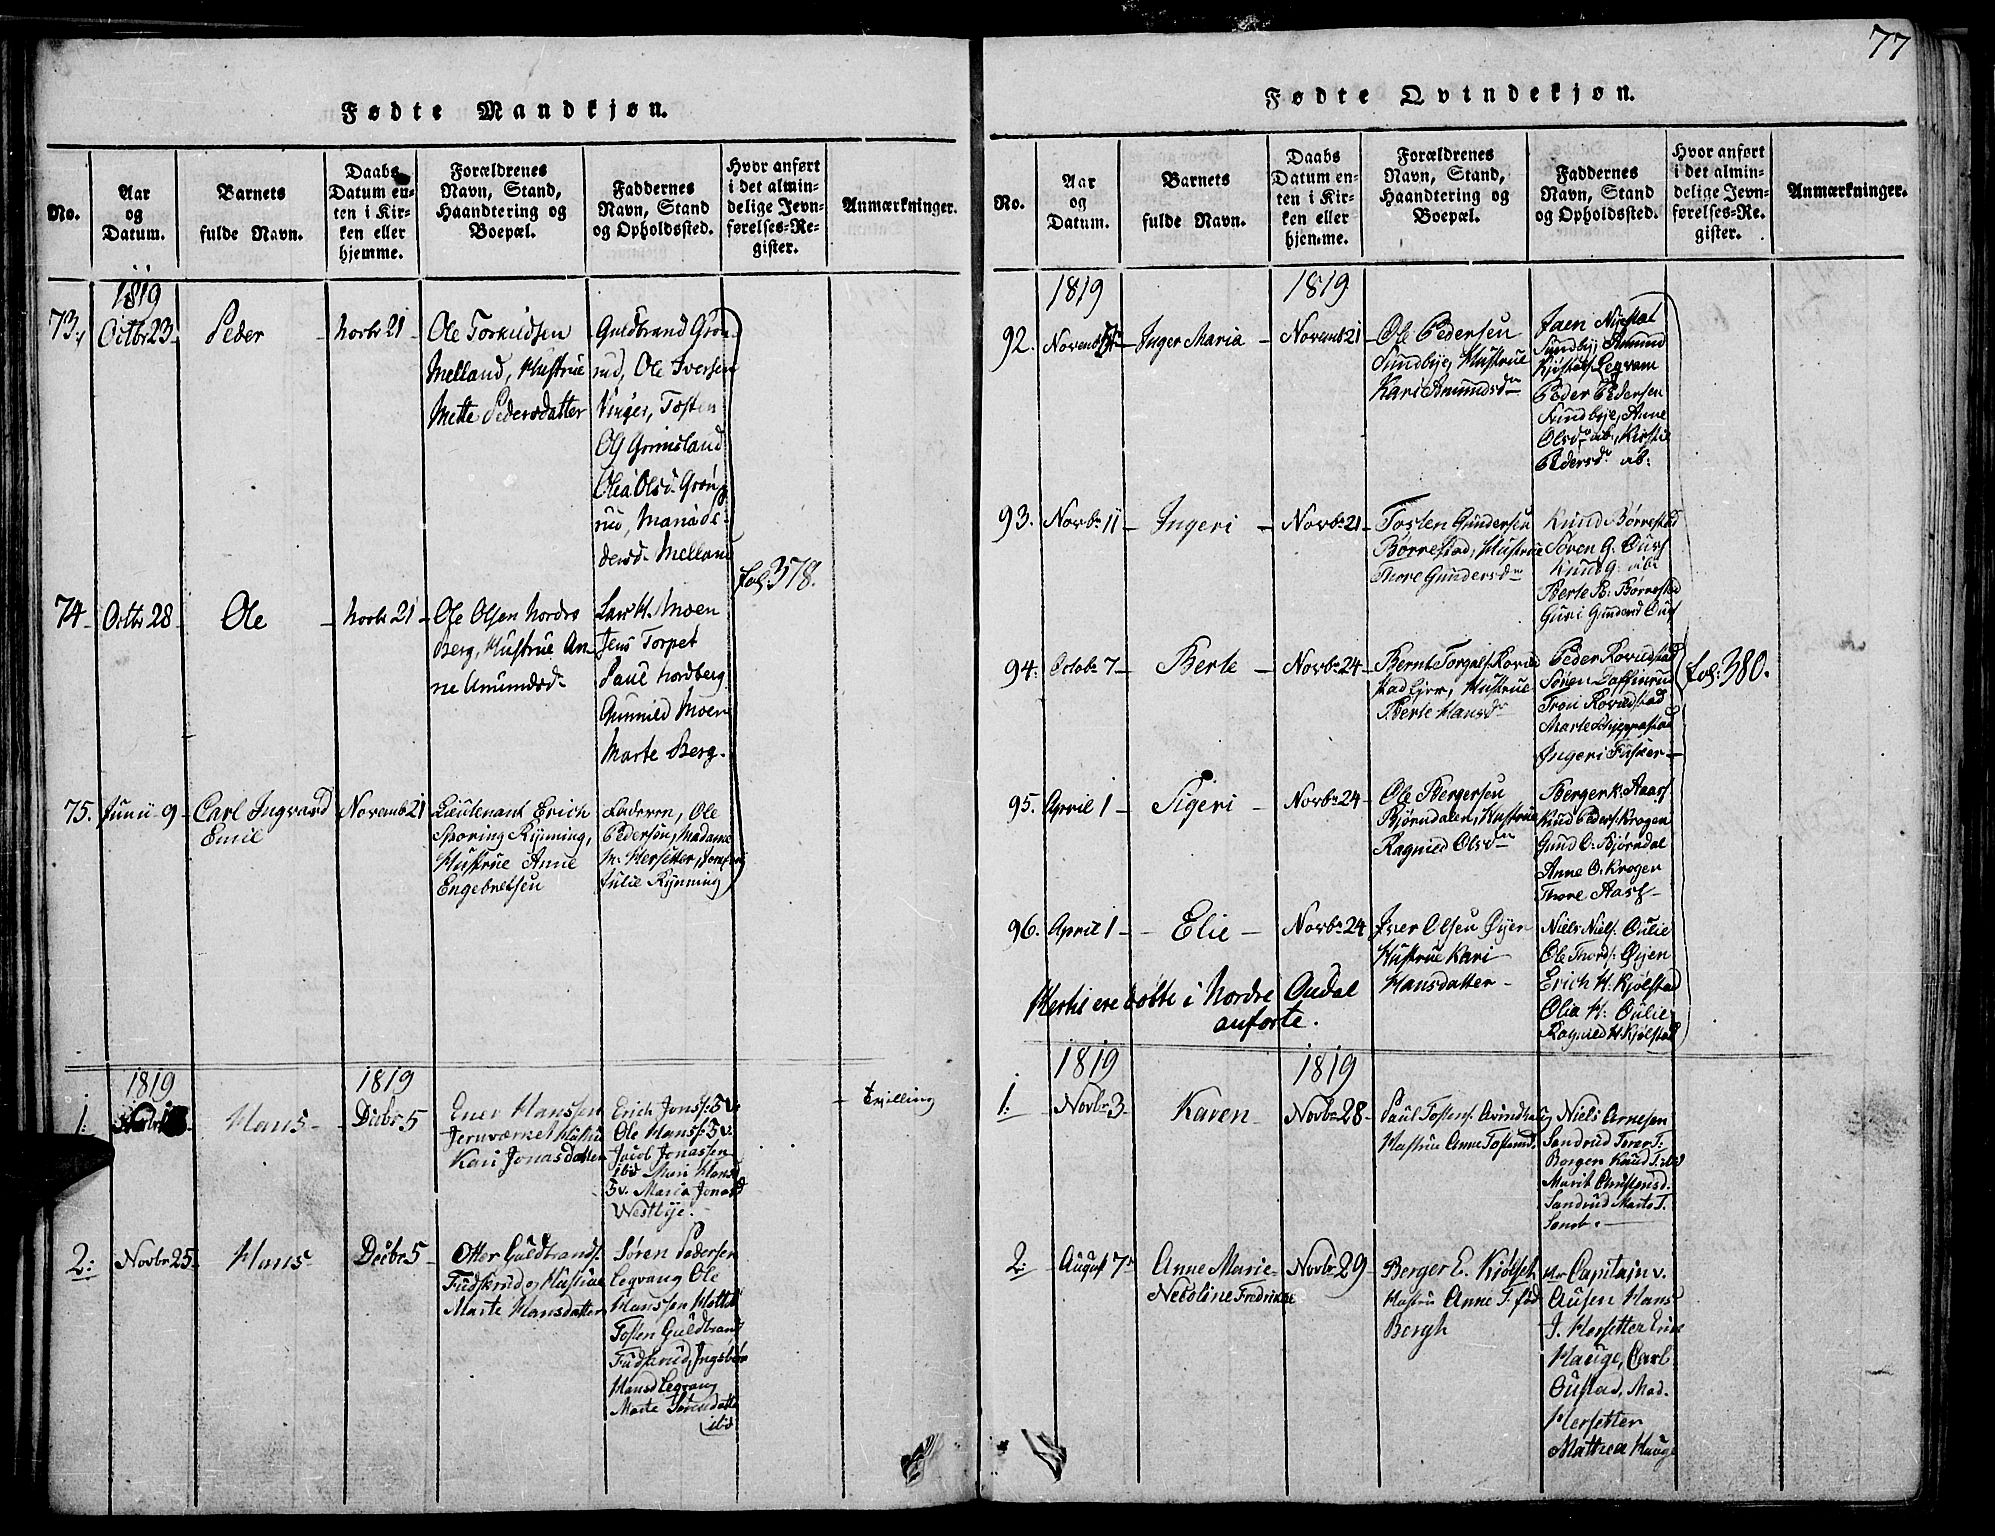 77
Fødte Mandkjøn.
No.
Aar
og
Datum.
Barnets
fulde Navn.
Daabs
Datum en-
ten i Kir-
ken eller
hjemme.
Forældrenes
Navn, Stand,
Haandtering og
Boepæl.
Faddernes
Navn, Stand
og Opholdssted.
Hvor anført
i det almin-
delige Jevn-
førelses-Re-
gister.
Anmærkninger.
1819
73.
Octbr 23
Peder
Novbr 21
Ole Torkildsen
Melland, Hustrue
Mette Pedersdatter
Guldbrand Grøn-
rud, Ole Iversen
Tosten
Grimsland
Olea Olsd. Grøn-
rud, Maria
Melland
fol: 378.
74
Octbr 28
Ole
Novbr 21
Ole Olsen Nordre
Berg, Hustrue An-
ne Amundsd.
Lars H. Moen
Jens Torpet
Paul Nordberg
Gunnild Moen
Marte Berg.
75.
Junii 9
Carl Ingvard
Emil
Novemb 21
Lieutenant Erich
Sporing Rynning,
Hustrue Anne
Engebretsen
Faderen, Ole
Pedersen, Madame
M. Hersetter, Jomfrue
Julie Rynning
1819
1819
1:
Novbr
Hans
Decbr 5
Ener Hanssen
Jernværket Hustru
Kari Jonasdatter
Erich Jonss: 5v.
Ole Hanss: 5v.
Jacob Jonassen
ibid Mari Hansd
5v. Maria Jonasd
Westbye.
tvilling
2:
Novbr 25
Hans
Decbr 5
Otter Guldbrands.
Fudskrud og Hustrue
Marte Hansdatter
Søren Pedersen
Legvang Ole
Hanssen
Tosten Guldbrand
Fudskrud, Ingebor
Hansd Legvang
Marte Sørensdatter
ibid
Fødte Qvindekjøn.
No.
Aar
og
Datum.
Barnets
fulde Navn.
Daabs
Datum en-
ten i Kir-
ken eller
hjemme.
Forældrenes
Navn, Stand,
Haandtering og
Boepæl.
Faddernes
Navn, Stand
og Opholdssted.
Hvor anført
i det almin-
delige Jevn-
førelses-Re-
gister.
Anmærkninger.
1819
1819
92.
Novemb
Inger Maria
Novemb 21
Ole Pedersen
Sundbye, Hustrue
Kari Amundsdr
Sundby, Amund
Legvam
Peder Pedersen
Sundbye, Anne
Olsdr ib:, Kirstie
Pedersdr ib:
93.
Novbr 11
Ingeri
Novbr 21
Tosten Gundersen
Børrestad, Hustrue
Thore Gundersdr
Knud Børrestad
Søren G. Ours
Knud G. ibd
Berte B. Børrestad
Guri Gundersd Ours
94:
Octobr 7
Berte
Novbr 24
Bernt Torgals. Rovid
stad Ejer, Hustrue
Berte Hansdr
Peder Rovudstad
Søren
Tron Rovudstad
Marte
Ingeri
fol: 380.
95.
April 1
Sigeri
Novbr 24
Ole Bergersen
Bjørndalen, Hustrue
Ragnild Olsdr
Berger K: Aass
Knud Peders: Krogen
Gund O. Bjørndal
Anne O: Krogen
Thore Aass
96.
April 1
Elie
Novbr 24
Iver Olsen Øyen
Hustrue Kari
Hansdatter
Niels Niels: Oulie
Ole Thords: Øyen
Erich H. Kjølstad
Olia H: Oulie
Ragnild H. Kjølstad
Hertil ere døbte i Nordre Oudal
anførte.
1819
1819
1:
Novbr 3
Karen
Novbr 28
Paul Tostens. Avindhaug
Hustrue Anne Tostensd.
Niels Arnesen
Sandrud
Borgen Knud T. ibid
Marit Christensd.
Sandrud Marte T.
2:
August 7
Anne Marie
Nicoline Fredrikke
Novbr 29
Berger E. Kjølseth
Hustru Anne T. fød
Bergh
Hr Capitajn v.
Ausen Hans
J. Hersetter Erik
Hauge, Carl
Oustad, Mad.
Hersetter
Mathea Hauge